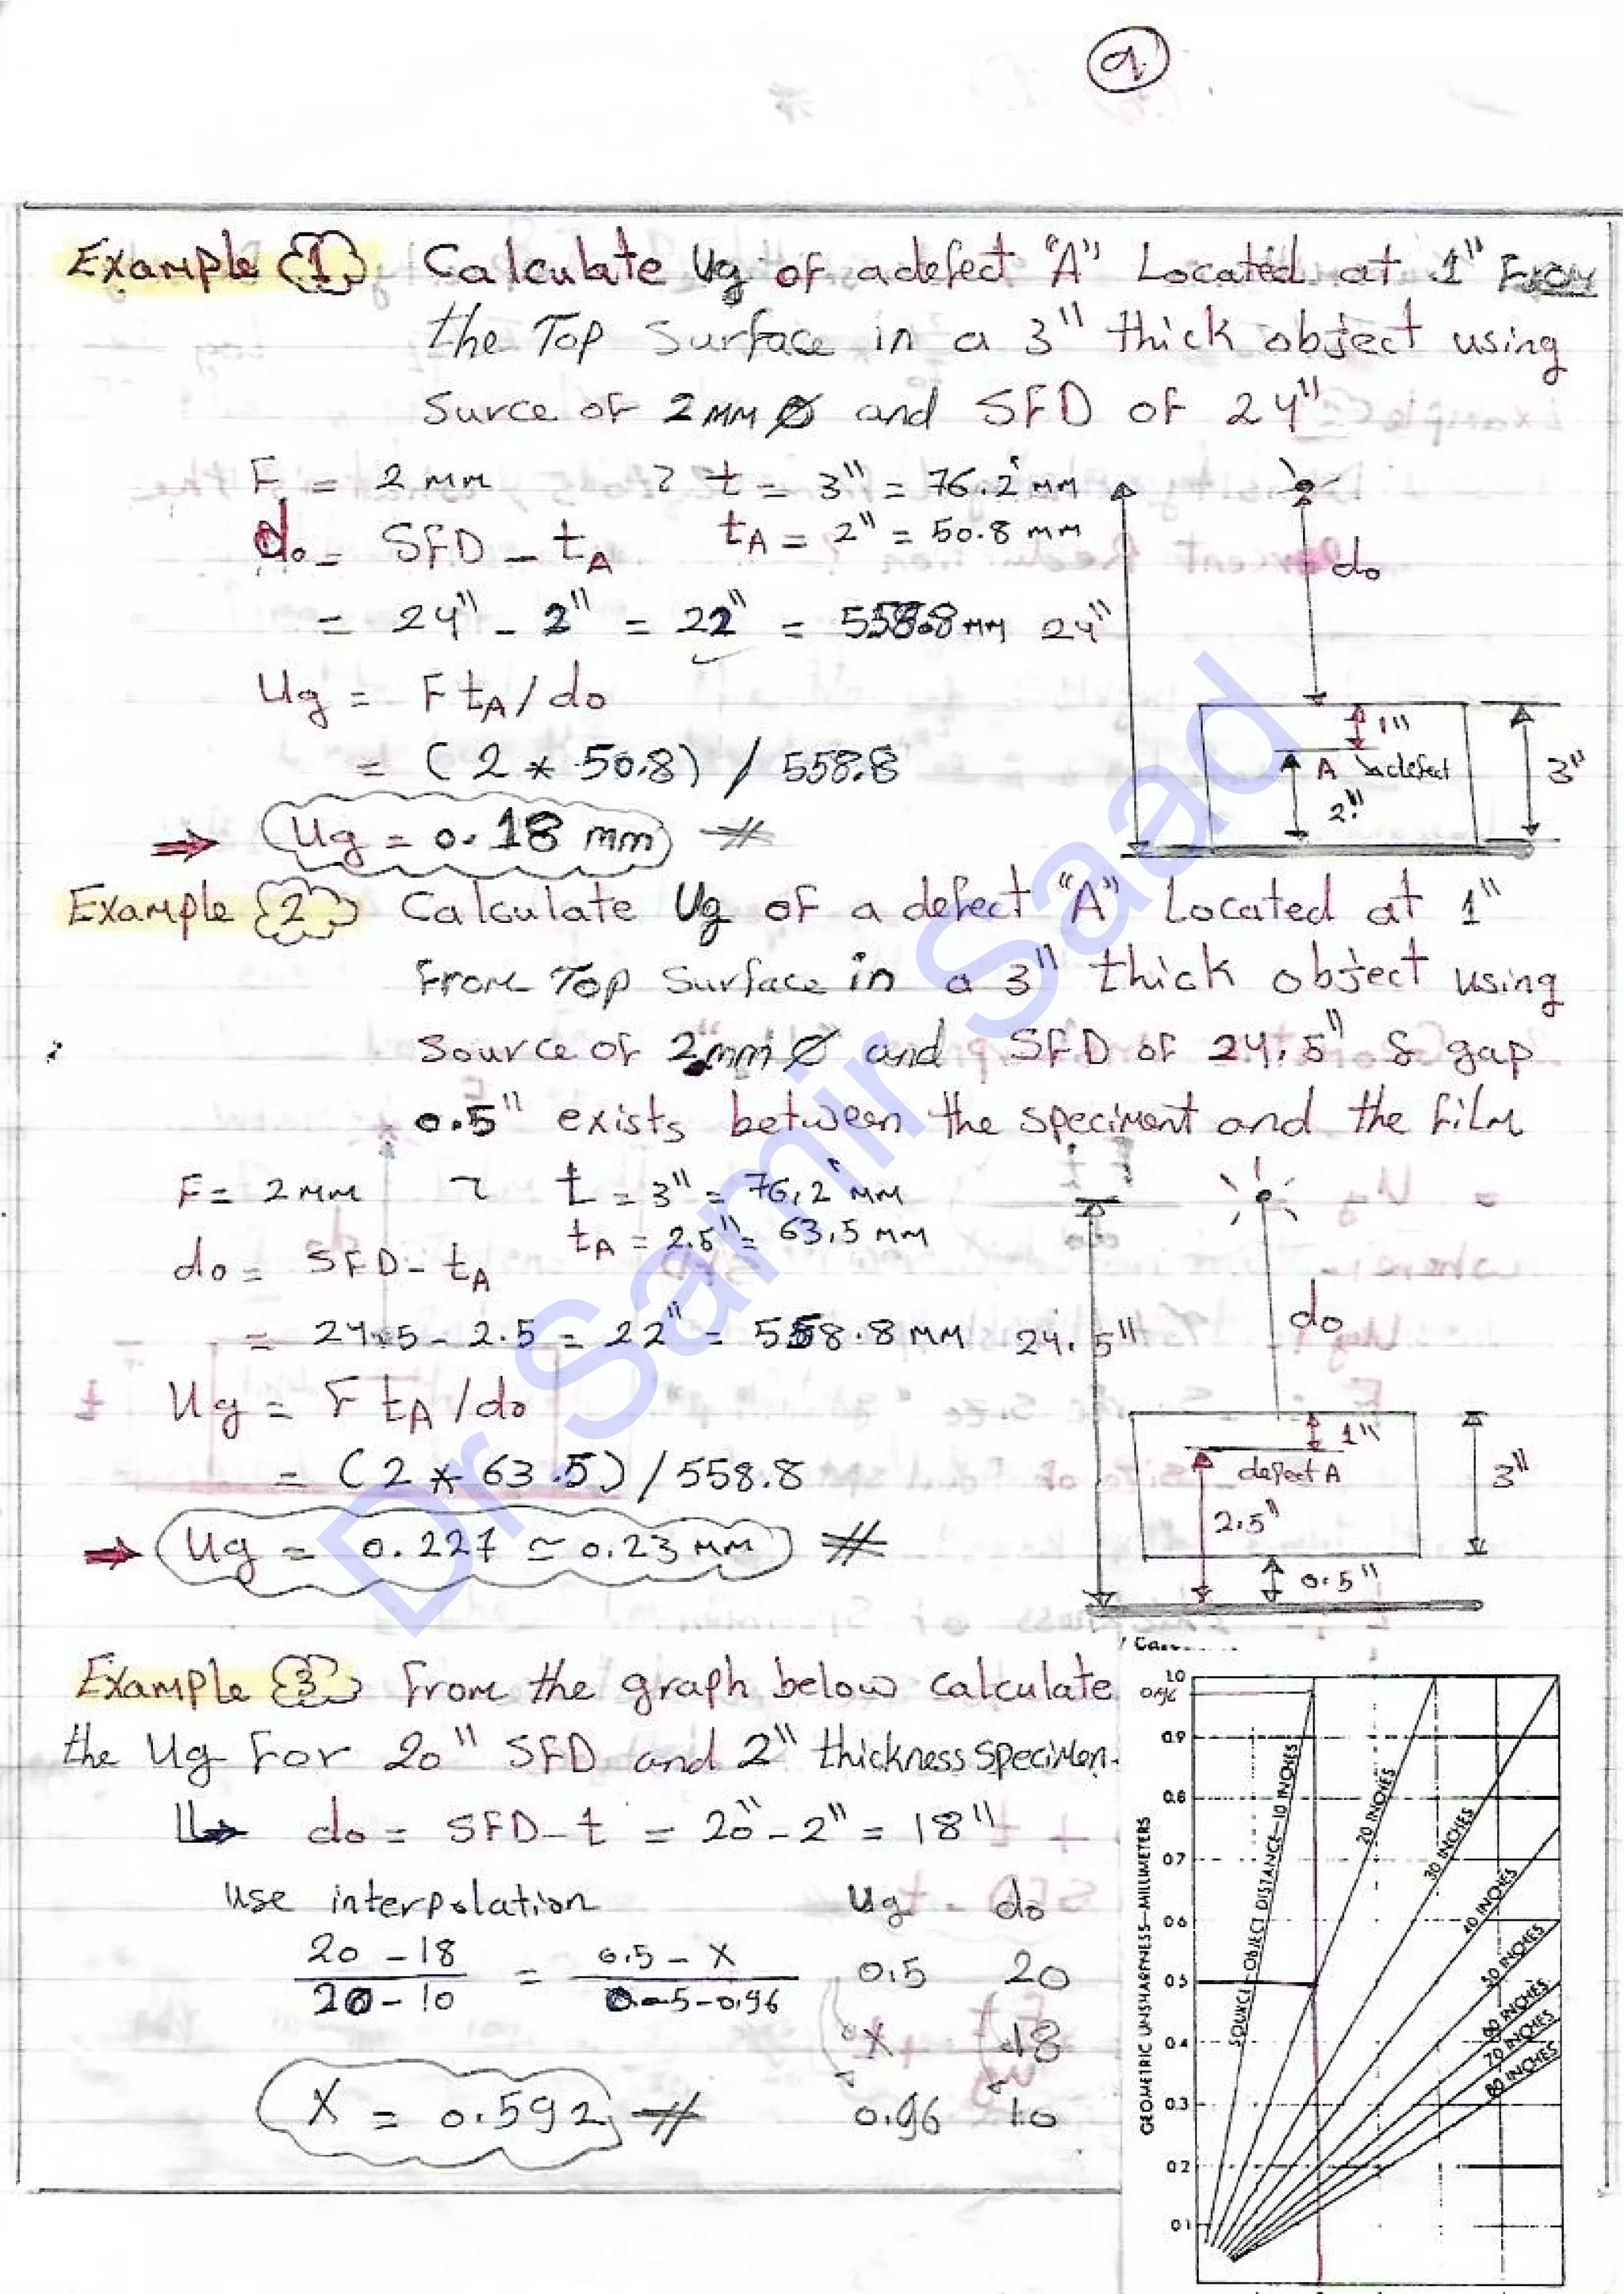 9
Example {1} Calculate Ug of a defect "A" Located at 1" From
the Top Surface in a 3" thick object using
Surce of 2 mm Ø and SFD of 24"
F = 2 mm , t = 3" = 76.2 mm
do = SFD - tA tA = 2" = 50.8 mm
do
= 24" - 2" = 22" = 558.8 mm 24"
Ug = F tA / do
1"
= (2 * 50.8) / 558.8
A defect 3"
2"
⇒ Ug = 0.18 mm #
Example {2} Calculate Ug of a defect "A" Located at 1"
From Top Surface in a 3" thick object using
Source of 2 mm Ø and SFD of 24.5" & gap
0.5" exists between the speciment and the film
F = 2 mm , t = 3" = 76,2 mm
tA = 2.5" = 63,5 mm
do = SFD - tA
do
= 24.5 - 2.5 = 22" = 558.8 mm 24.5"
Ug = F tA / do
1"
= (2 * 63.5) / 558.8
defect A 3"
2.5"
⇒ Ug = 0.227 ≃ 0.23 mm #
0.5"
Example {3} From the graph below calculate
the Ug For 20" SFD and 2" thickness specimen.
do = SFD - t = 20" - 2" = 18"
use interpolation Ug - do
20 - 18 = 0.5 - X
20 - 10 0.5 - 0.96
0.5 20
X 18
0.96 10
X = 0.592 #
1.0
0.96
0.9
0.8
0.7
0.6
0.5
0.4
0.3
0.2
0.1
GEOMETRIC UNSHARPNESS—MILLIMETERS
SOURCE-OBJECT DISTANCE—10 INCHES
20 INCHES
30 INCHES
40 INCHES
50 INCHES
60 INCHES
70 INCHES
80 INCHES
Dr Samir Saad